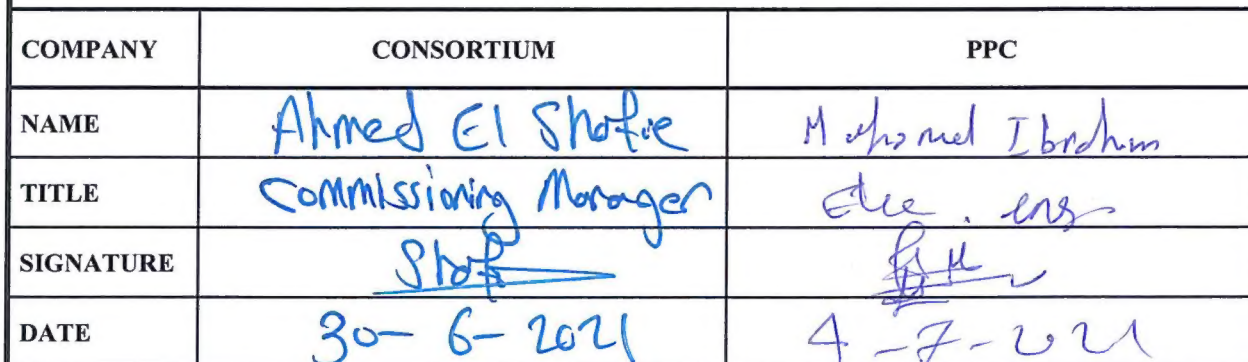 COMPANY CONSORTIUM PPC
NAME Ahmed El Shafie Mohamed Ibrahim
TITLE Commissioning Manager Elec. eng
SIGNATURE Shafi
DATE 30-6-2021 4-7-2021